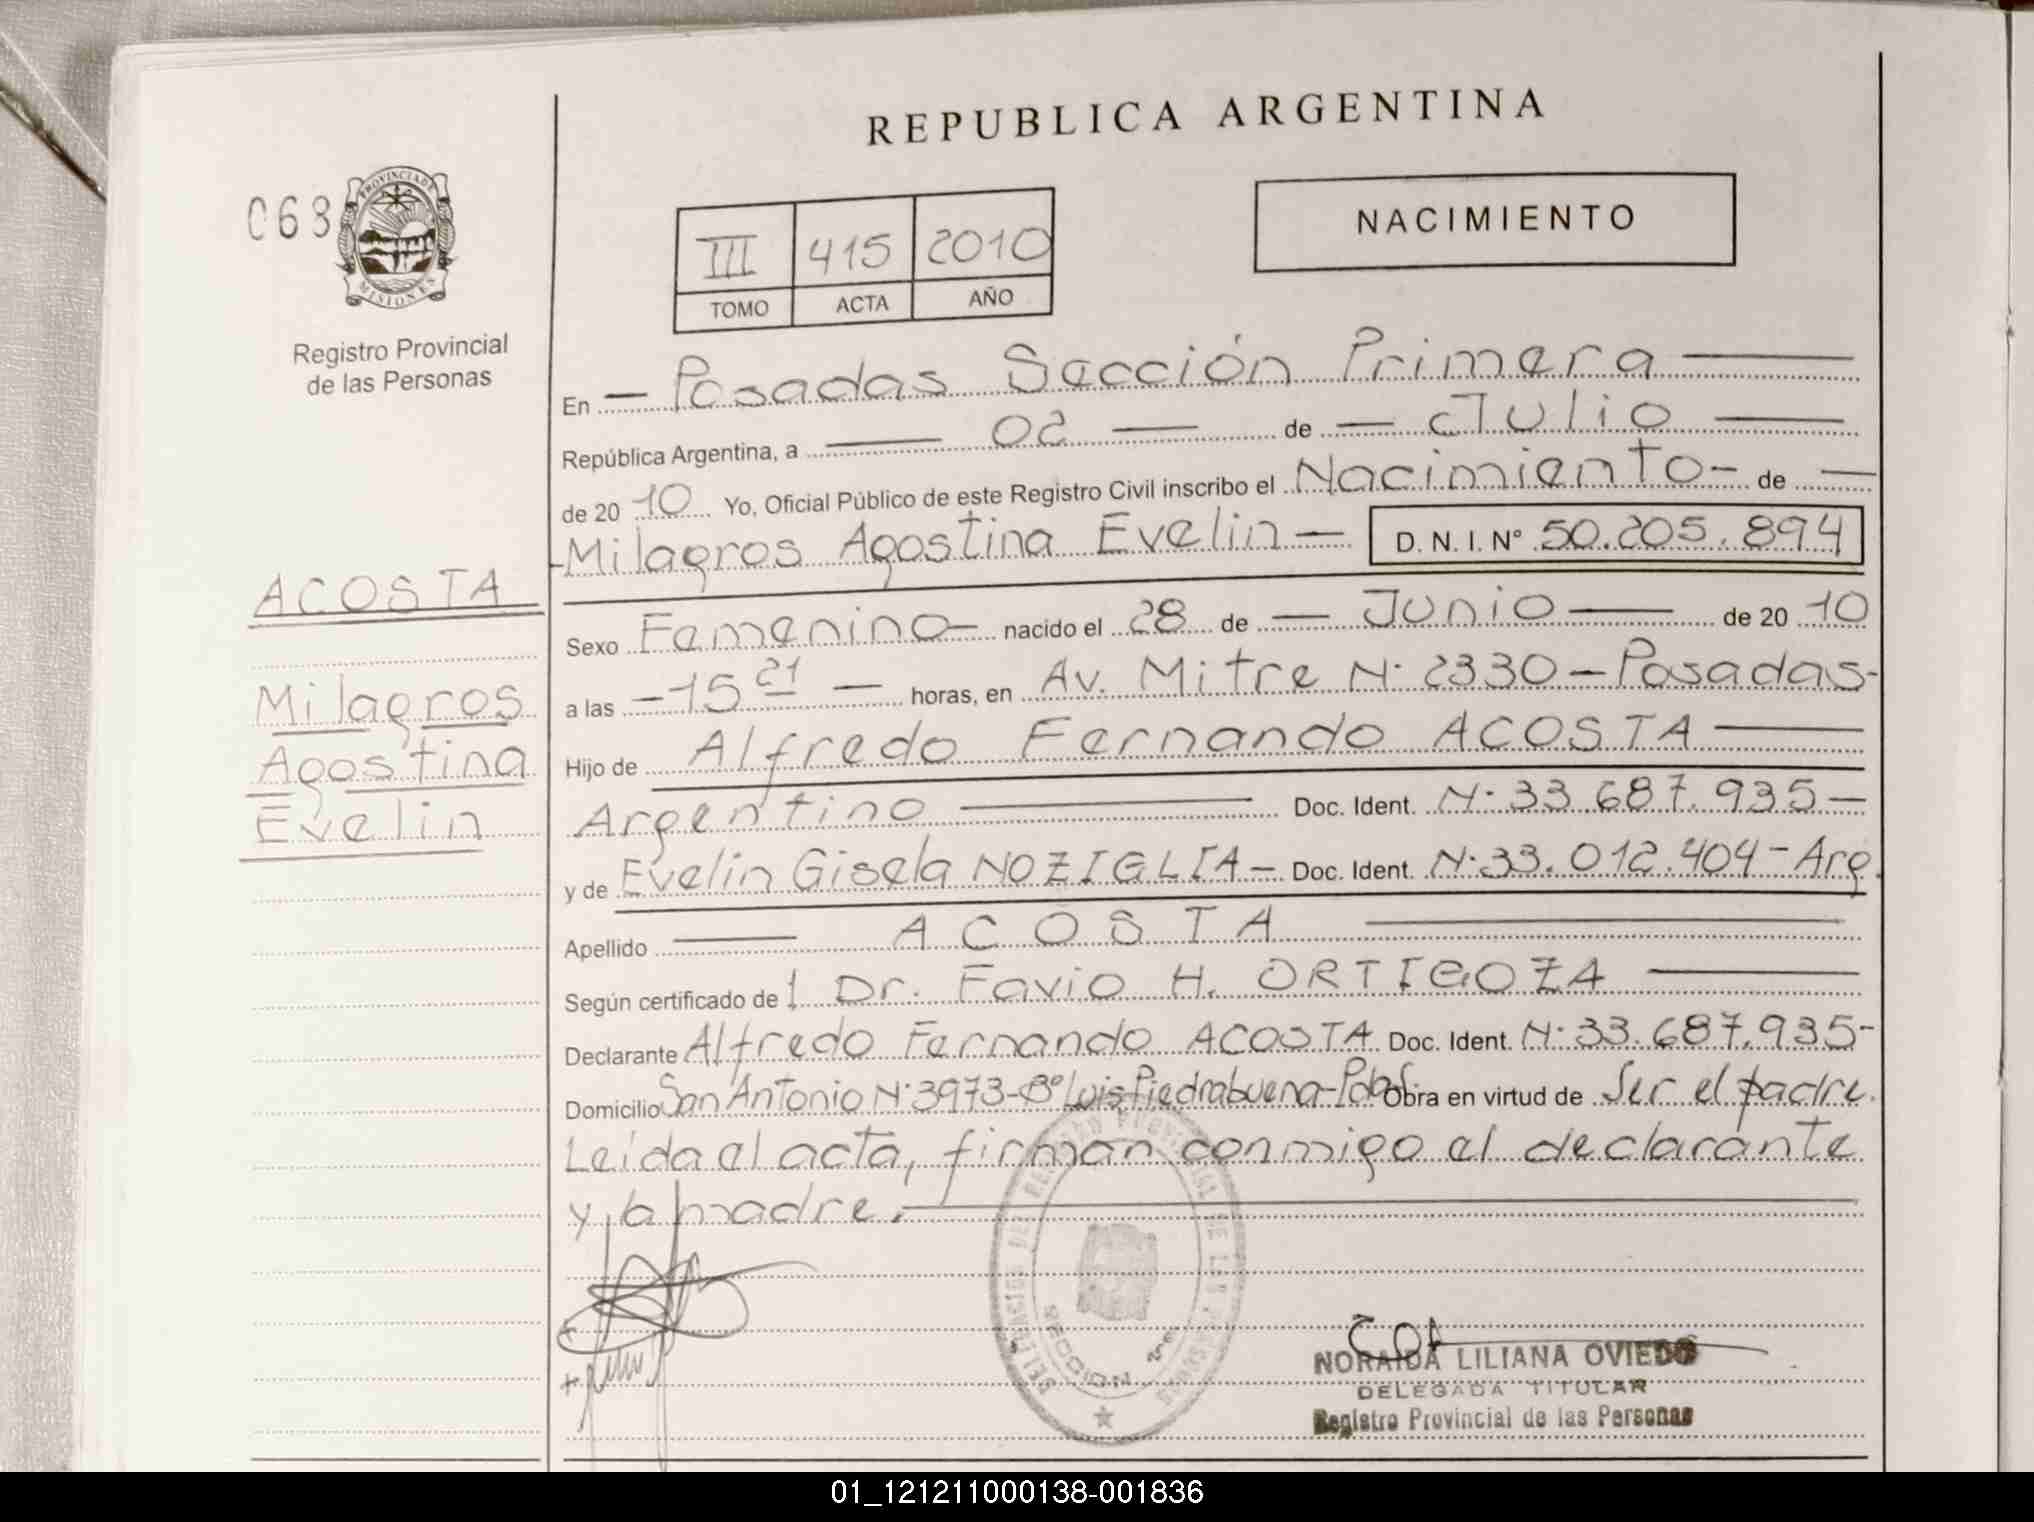 REPUBLICA ARGENTINA
063
PROVINCIA DE
MISIONES
Registro Provincial
de las Personas
III 415 2010
TOMO ACTA AÑO
NACIMIENTO
En — Posadas Sección Primera —
República Argentina, a — 02 — de — Julio —
de 20 10 Yo, Oficial Público de este Registro Civil inscribo el Nacimiento - de —
- Milagros Agostina Evelin — D. N. I. Nº 50.205.894
ACOSTA
Milagros
Agostina
Evelin
Sexo Femenino - nacido el 28 de — Junio — de 20 10
a las - 15 21 — horas, en Av. Mitre N· 2330 - Posadas -
Hijo de Alfredo Fernando ACOSTA —
Argentino — Doc. Ident. N· 33.687.935 —
y de Evelin Gisela NOZIGLIA - Doc. Ident. N· 33.012.404 - Arg.
Apellido — ACOSTA —
Según certificado del Dr. Favio H. ORTIGOZA —
Declarante Alfredo Fernando ACOSTA Doc. Ident. N· 33.687.935 -
Domicilio San Antonio N· 3973 - Bº Luis Piedrabuena - Pdas. Obra en virtud de Ser el padre.
Leída el acta, firman conmigo el declarante
y la madre. —
DELEGACION DEL REGISTRO PROVINCIAL DE LAS PERSONAS
SECCION
NORAIDA LILIANA OVIEDO
DELEGADA TITULAR
Registro Provincial de las Personas
01_121211000138-001836